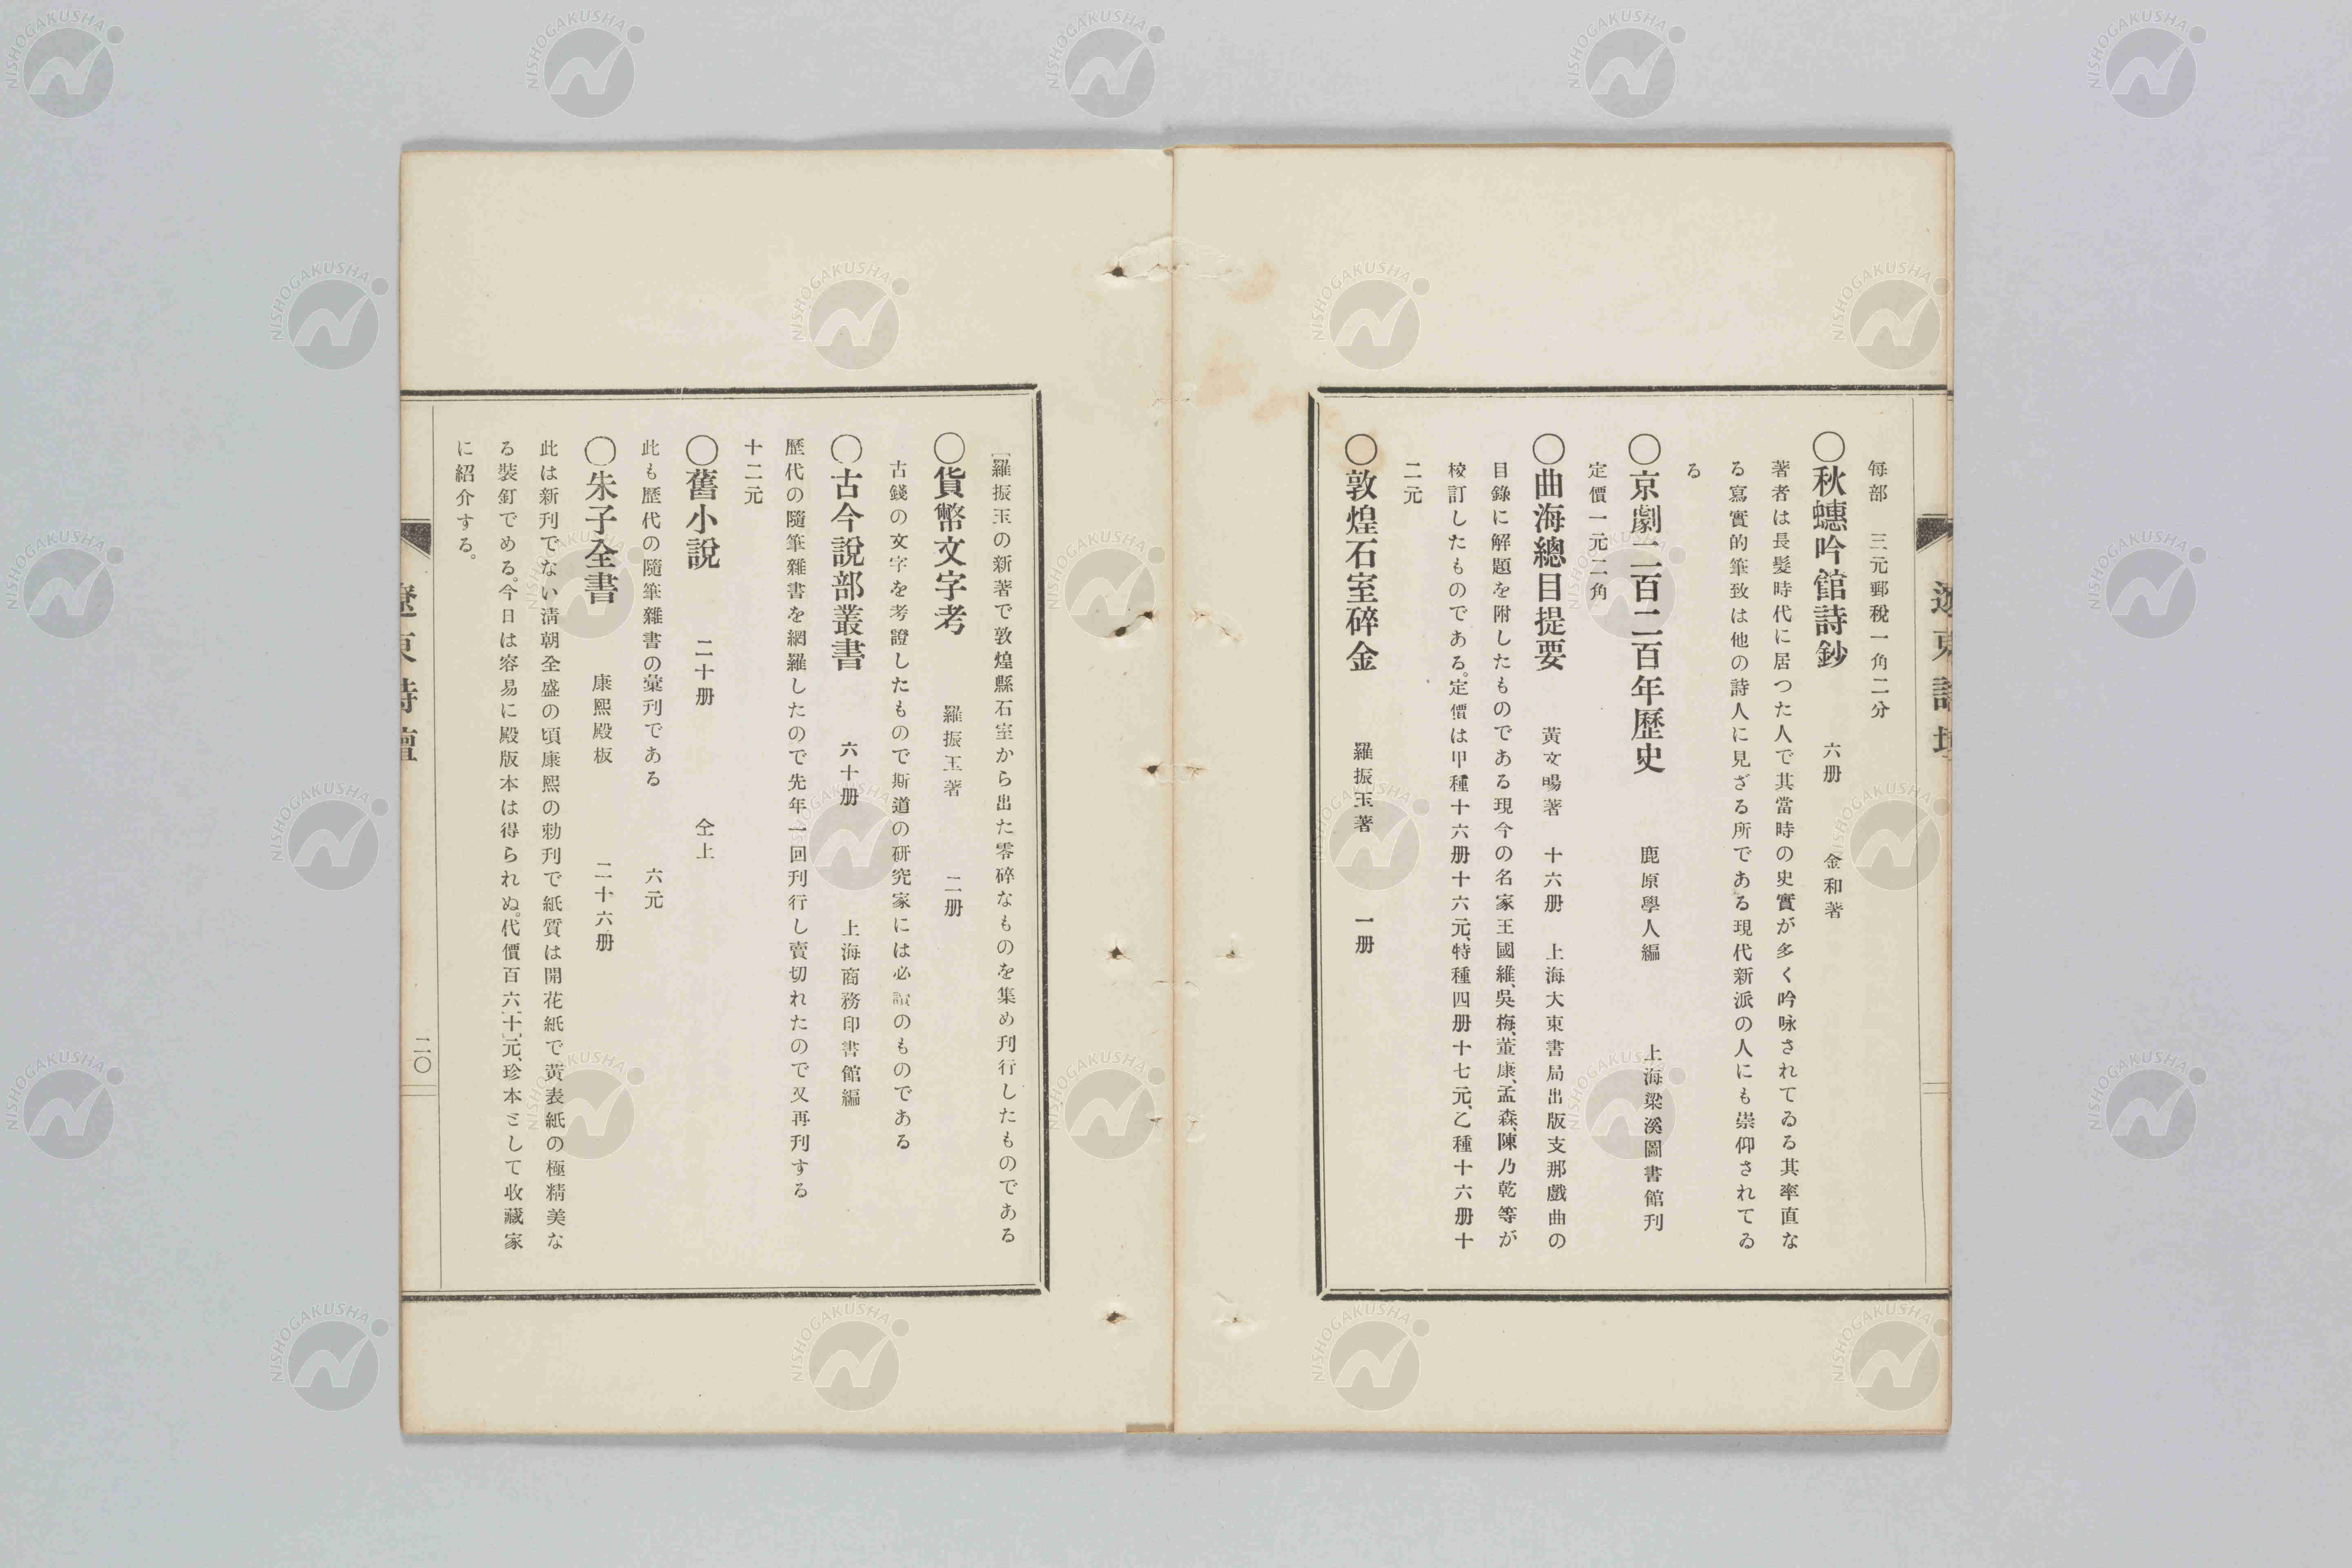 遼東詩壇
每部　三元郵稅一角二分
〇秋蟪吟館詩鈔　六册　金和著
著者は長髮時代に居つた人で其當時の史實が多く吟咏されてゐる其率直な
る寫實的筆致は他の詩人に見ざる所である現代新派の人にも崇仰されてゐ
る
〇京劇二百二百年歷史　鹿原學人編　上海梁溪圖書館刊
定價一元二角
〇曲海總目提要　黃文暘著　十六册　上海大東書局出版支那戲曲の
目錄に解題を附したものである現今の名家王國維、吳梅、董康、孟森、陳乃乾等が
校訂したものである。定價は甲種十六册十六元、特種四册十七元、乙種十六册十
二元
〇敦煌石室碎金　羅振玉著　一册
羅振玉の新著で敦煌縣石室から出た零碎なものを集め刊行したものである
〇貨幣文字考　羅振玉著　二册
古錢の文字を考證したもので斯道の研究家には必讀のものである
〇古今說部叢書　六十册　上海商務印書館編
歷代の隨筆雜書を網羅したので先年一回刊行し賣切れたので又再刊する
十二元
〇舊小說　二十册　仝上
此も歷代の隨筆雜書の彙刊である　六元
〇朱子全書　康熙殿板　二十六册
此は新刊でない淸朝全盛の頃康熙の勅刊で紙質は開花紙で黃表紙の極精美な
る裝釘でめる。今日は容易に殿版本は得られぬ。代價百六十元、珍本ミして收藏家
に紹介する。
遼東詩壇
二〇
NISHOGAKUSHA